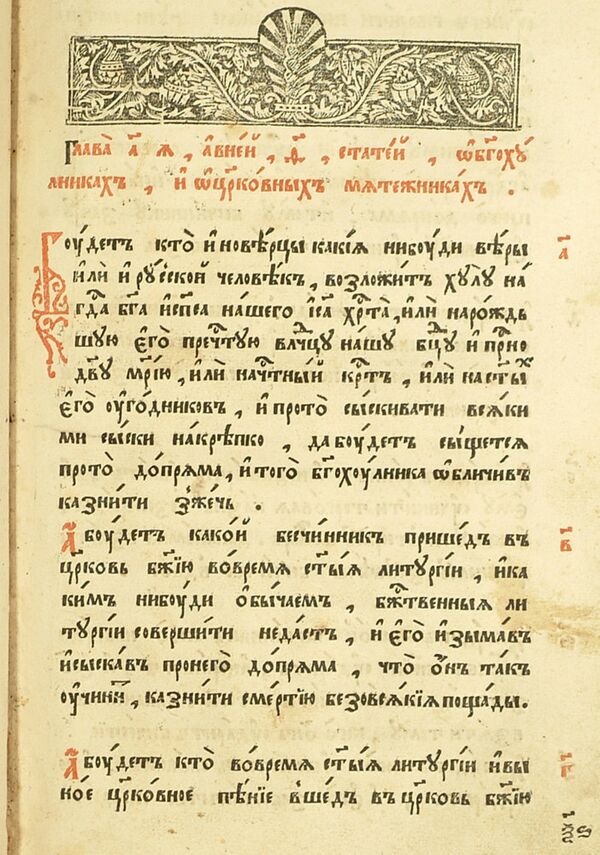 Глава̀ а҃ ꙗ , авне́й , ѳ҃ , стате́й , ѡ҆бг҃охꙋ́
лникахъ , и҆ ѡ҆цр҃ко́вныхъ мѧте́жникахъ .
Боу́детъ кто̀ и҆новѣ́рцы какі́ѧ нибоу́ди вѣ́ры
и҆лѝ и҆ рꙋ́сской человѣ́къ , возложи́тъ хꙋлꙋ̀ на́
гдⷭ҇а бг҃а и҆сп҃са на́шего і҆с҃а хрⷭ҇та̀ , и҆лѝ наро́ждь
шꙋю е҆го̀ пречⷭ҇тꙋю влⷣчцꙋ на́шꙋ бцⷣꙋ и҆ прⷭ҇но
дв҃ꙋ мр҃і́ю , и҆лѝ начⷭ҇тны́й крⷭ҇тъ , и҆лѝ на ст҃ы́ⷯ
е҆го̀ оу҆го́дниковъ , и҆ прото̀ сы́скивати всѧ́ки
ми сы́ски накрѣ́пко , да боу́детъ сы́щетсѧ
прото̀ до́прѧма , и҆ того̀ бг҃охоу́лника ѡ҆бличи́въ
казни́ти зже́чь .
А҆ боу́детъ како́й безчи́нникъ прише́дъ въ
цр҃ковь бж҃їю во́времѧ ст҃ы́ѧ литꙋргі́и , и҆ ка
ки́мъ нибоу́ди о҆бы́чаемъ , бжⷭ҇твенныѧ ли
тꙋргі́и соверши́ти неда́стъ , и҆ е҆го̀ и҆зыма́въ
и҆ сыска́въ пронего̀ до́прѧма , что̀ о҆́нъ та́къ
оу҆чини́ⷮ , казни́ти сме́ртїю безовсѧ́кїѧ поща́ды .
А҆ боу́детъ кто̀ во́времѧ ст҃ы́ѧ литꙋргі́и и҆ вы
но́е цр҃ко́вное пѣ́нїе вше́дъ въ цр҃ковь бж҃їю
а҃
в҃
г҃